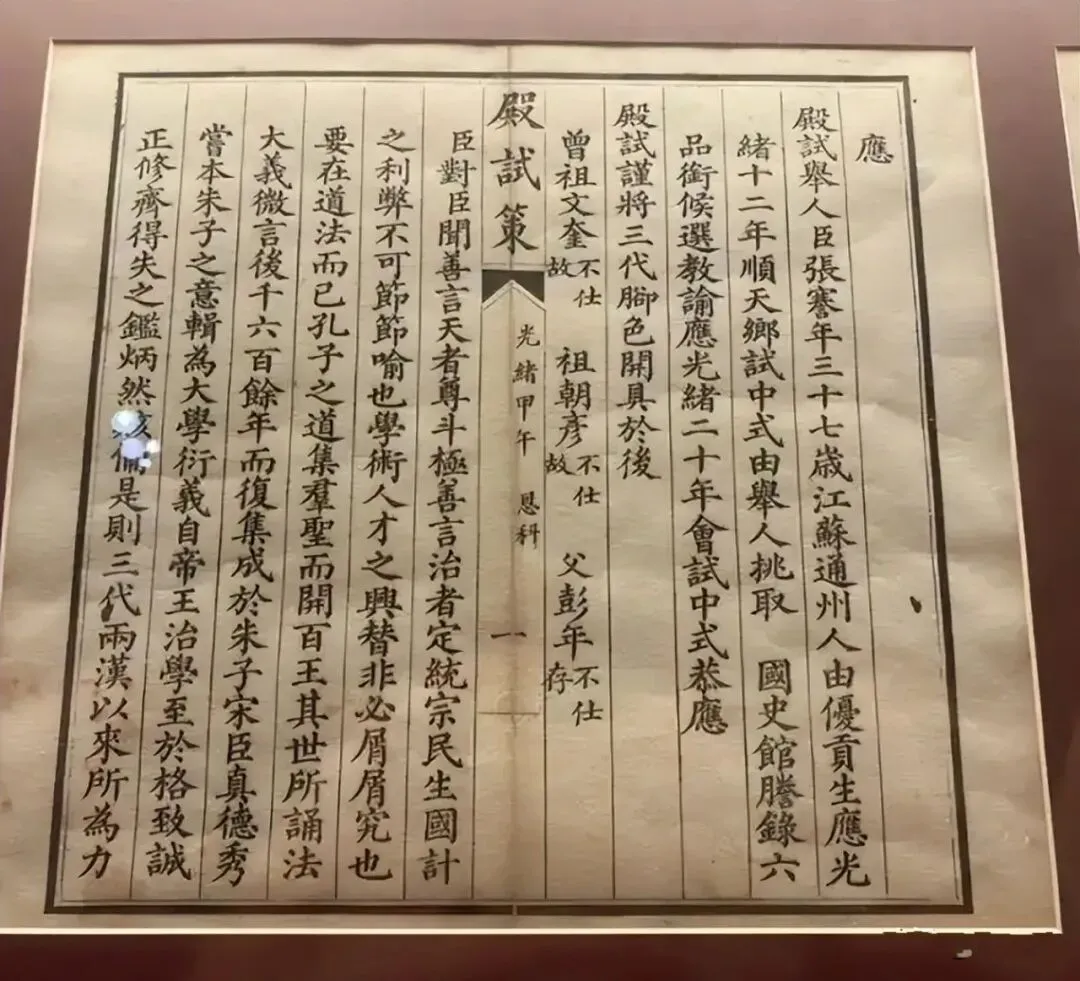 應
殿試舉人臣張謇年三十七歲江蘇通州人由優貢生應光
緒十二年順天鄉試中式由舉人挑取 國史館謄錄六
品銜候選教諭應光緒二十年會試中式恭應
殿試謹將三代腳色開具於後
曾祖文奎不仕故 祖朝彥不仕故 父彭年不仕存
殿試策 光緒甲午 恩科 一
臣對臣聞善言天者尊斗極善言治者定統宗民生國計
之利弊不可節節喻也學術人才之興替非必屑屑究也
要在道法而已孔子之道集羣聖而開百王其世所誦法
大義微言後千六百餘年而復集成於朱子宋臣真德秀
嘗本朱子之意輯為大學衍義自帝王治學至於格致誠
正修齊得失之鑑炳然是則三代兩漢以來所為力